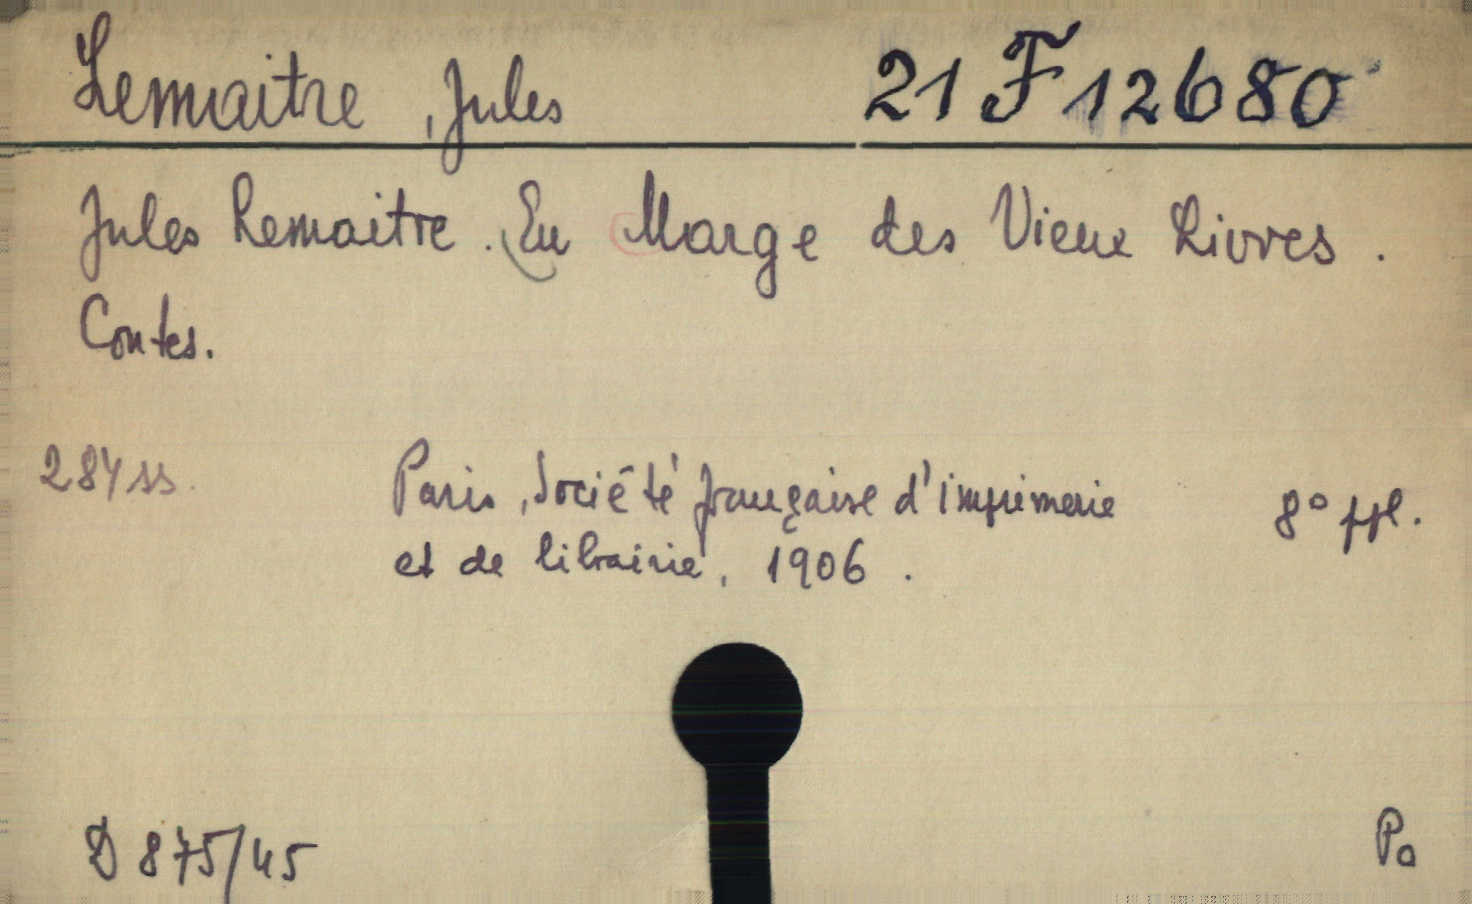 Lemaitre, Jules 21 F 12680
Jules Lemaitre. En Marge des Vieux Livres.
Contes.
284 ss. Paris, Société française d'imprimerie 8° ppl.
et de librairie, 1906.
D 875/45 Pa